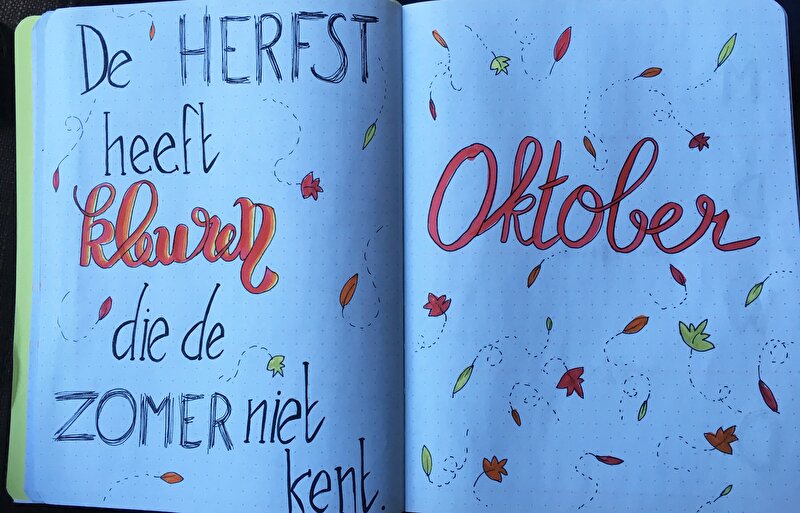 De HERFST
heeft
kleuren
die de
ZOMER niet
kent.
Oktober